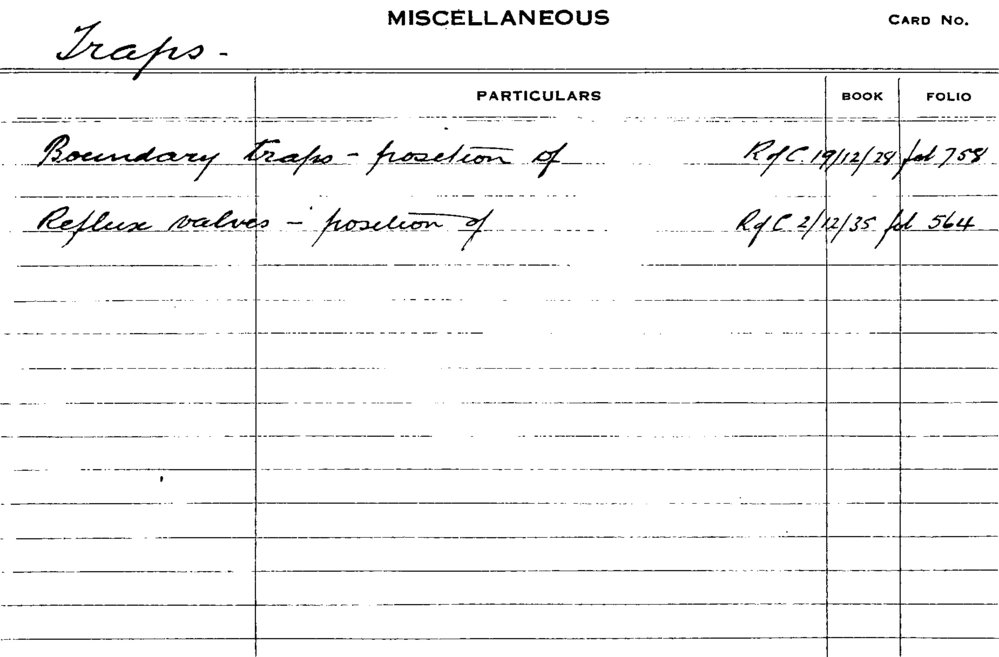 MISCELLANEOUS
CARD No.
Traps -
PARTICULARS BOOK FOLIO
Boundary traps - position of R of C 19/12/28 fol 758
Reflux valves - position of R of C 2/12/35 fol 564